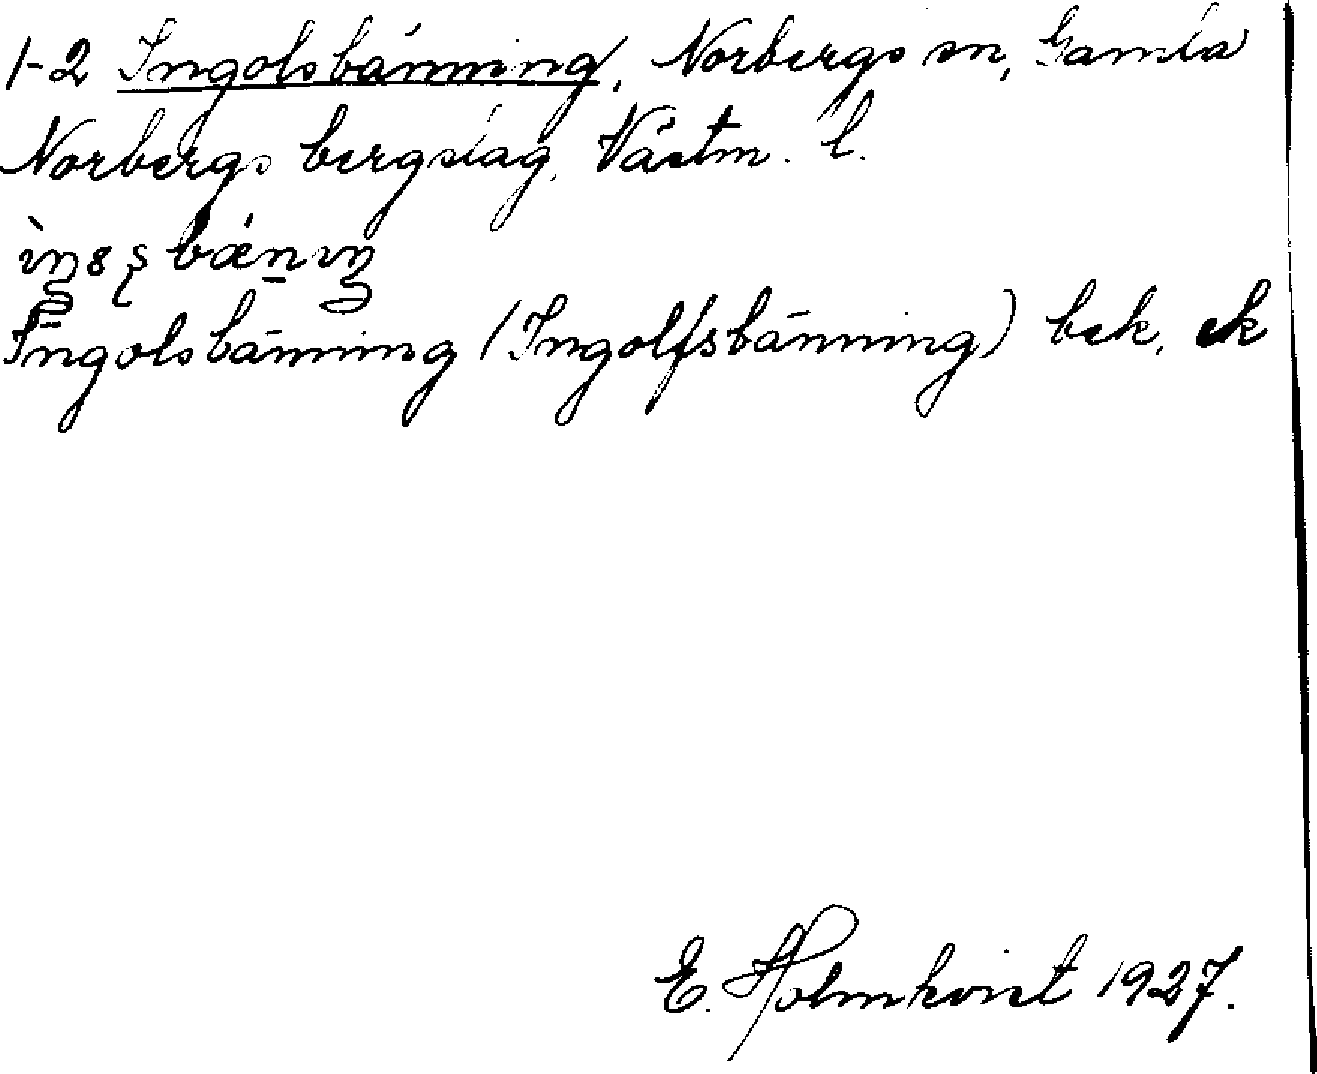 1-2 Ingolsbänning, Norbergs sn, Gamla
Norbergs bergslag, Västm. l.
Ingolsbänning (Ingolfsbänning) bek. ek
E. Holmkvist 1927.